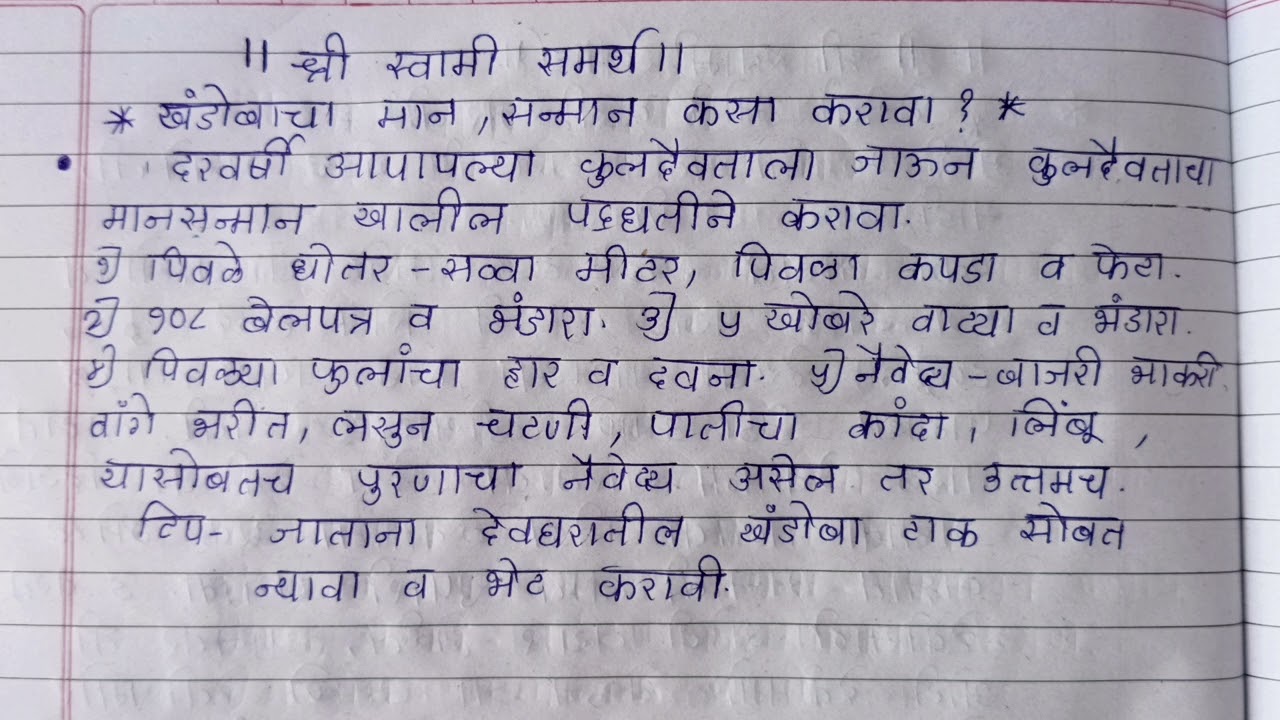 ॥ श्री स्वामी समर्थ॥
* खंडोबाचा मान, सन्मान कसा करावा ? *
• दरवर्षी आपापल्या कुलदैवताला जाऊन कुलदैवताचा
मानसन्मान खालील पद्धतीने करावा.
१) पिवळे धोतर - सव्वा मीटर, पिवळा कपडा व फेटा.
२) १०८ बेलपत्र व भंडारा. ३) ५ खोबरे वाट्या व भंडारा.
४) पिवळ्या फुलांचा हार व दवना. ५) नैवेद्य - बाजरी भाकरी,
वांगे भरीत, लसुन चटणी, पातीचा कांदा, लिंबू,
यासोबतच पुरणाचा नैवेद्य असेल तर उत्तमच.
टिप- जाताना देवघरातील खंडोबा टाक सोबत
न्यावा व भेट करावी.